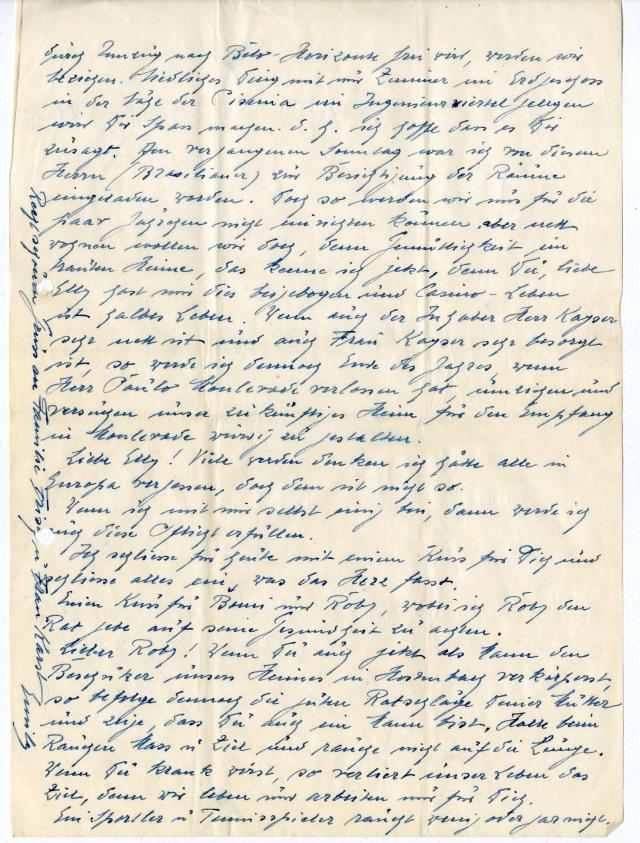 durch Umzug nach Belo-Horizonte frei wird, werden wir
beziehen. Niedliches Ding mit nur Zimmer im Erdgeschoss
in der Nähe der Cisama im Ingenieurviertel gelegen
wird Dir Spass machen. d. h. ich hoffe dass es Dir
zusagt. Am vergangenen Sonntag war ich von diesem
Herrn (Brasilianer) zur Besichtigung der Räume
eingeladen worden. Doch so werden wir uns für die
paar Jährchen nicht einrichten können, aber nett
wohnen wollen wir doch, denn Gemütlichkeit im
trauten Heime, das kenne ich jetzt, denn Du, liebe
Elly hast mir dies beigebogen und Casino-Leben
ist halbes Leben. Wenn auch der Inhaber Herr Kayser
sehr nett ist und auch Frau Kayser sehr besorgt
ist, so werde ich dennoch Ende des Jahres, wenn
Herr Paulo Monlevade verlassen hat, umziehen und
versuchen unser zukünftiges Heim für den Empfang
in Monlevade würdig zu gestalten.
Liebe Elly! Viele werden denken ich hätte alle in
Europa vergessen, doch dem ist nicht so.
Wenn ich mit mir selbst einig bin, dann werde ich
auch diese Pflicht erfüllen.
Ich schliesse für heute mit einem Kuss für Dich und
schliesse alles ein, was das Herz fasst.
Einen Kuss für Bomi und Roby, wobei ich Roby den
Rat gebe auf seine Gesundheit zu achten.
Lieber Roby! Wenn Du auch jetzt als Mann den
Beschützer unseres Heimes in verkörperst,
so befolge dennoch die guten Ratschläge Deiner Mutter
und zeige, dass Du auch ein Mann bist, Halte beim
Rauchen Mass u Ziel und rauche nicht auf die Lunge.
Wenn Du krank wirst, so verliert unser Leben das
Ziel, denn wir leben und arbeiten nur für Dich.
Ein Sportler u Tennisspieler raucht wenig oder gar nicht.
Gruss an Familie u Frau Karst
Emil